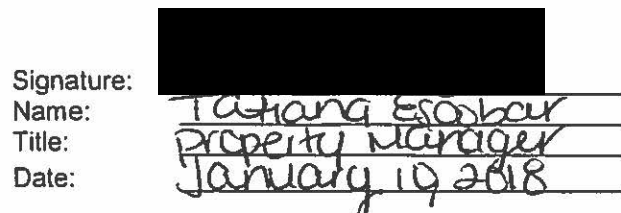 Signature:
Name: Tatiana Escobar
Title: Property Manager
Date: January 10, 2018